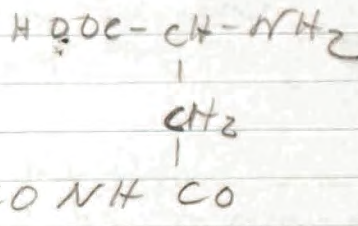 HOOC - CH - NH2
CH2
O NH CO